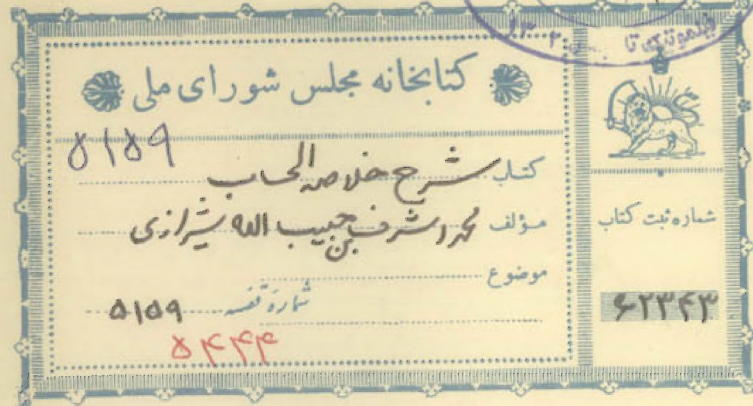 کتابخانه مجلس شورای ملی
۵۱۵۹
کتاب شرح خلاصه الحساب
مؤلف محمد اشرف بن حبیب الله شیرازی
موضوع
شماره قفسه ۵۱۵۹
۵۴۴۴
شماره ثبت کتاب
۶۲۳۴۳